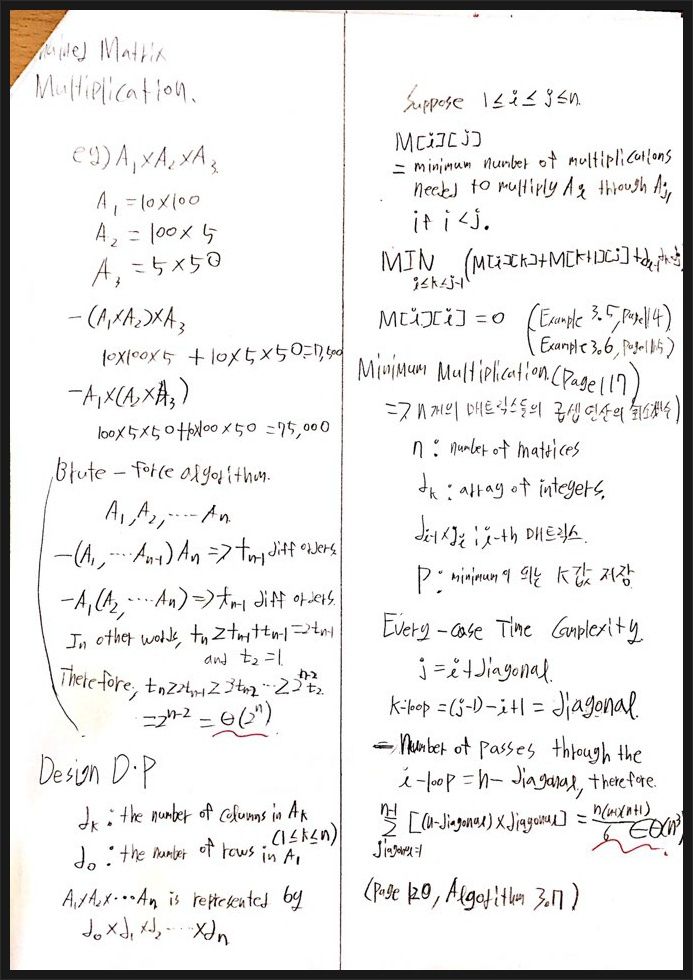 ained Matrix
Multiplication.
eg) A₁×A₂×A₃
A₁ = 10×100
A₂ = 100×5
A₃ = 5×50
- (A₁×A₂)×A₃
10×100×5 + 10×5×50 = 7,500
- A₁×(A₂×A₃)
100×5×50 + 10×100×50 = 75,000
Brute-force algorithm.
A₁, A₂, ---- An
-(A₁, ···· An-1) An => tn-1 diff orders.
-A₁(A₂, ···· An) => tn-1 diff orders.
In other words, tn ≥ tn-1 + tn-1 = 2tn-1
and t₂ = 1.
Therefore, tn ≥ 2tn-1 ≥ 2²tn-2 ··· ≥ 2ⁿ⁻² t₂
= 2ⁿ⁻² = Θ(2ⁿ)
Design D·P
dk : the number of columns in Ak
(1≤k≤n)
d₀ : the number of rows in A₁
A₁×A₂×···An is represented by
d₀×d₁×d₂ ·····×dn
Suppose 1≤i≤j≤n
M[i][j]
= minimum number of multiplications
needed to multiply Ai through Aj,
if i<j.
MIN (M[i][k]+M[k+1][j]+di-1dkdj)
i≤k≤j-1
M[i][i] = 0 (Example 3.5, page 114)
(Example 3.6, page 115)
Minimum Multiplication. (Page 117)
=> n개의 매트릭스들의 곱셈 연산의 최소개수)
n : number of matrices
dk : array of integers.
di-1×di : i-th 매트릭스.
P : minimum이 되는 k값 저장
Every-case Time Complexity.
j = i+diagonal.
k-loop = (j-1)-i+1 = diagonal.
- Number of passes through the
i-loop = n-diagonal, therefore.
n-1
∑ [(n-diagonal)×diagonal] = n(n-1)(n+1)/6 ∈ Θ(n³)
diagonal=1
(page 120, Algorithm 3.7)